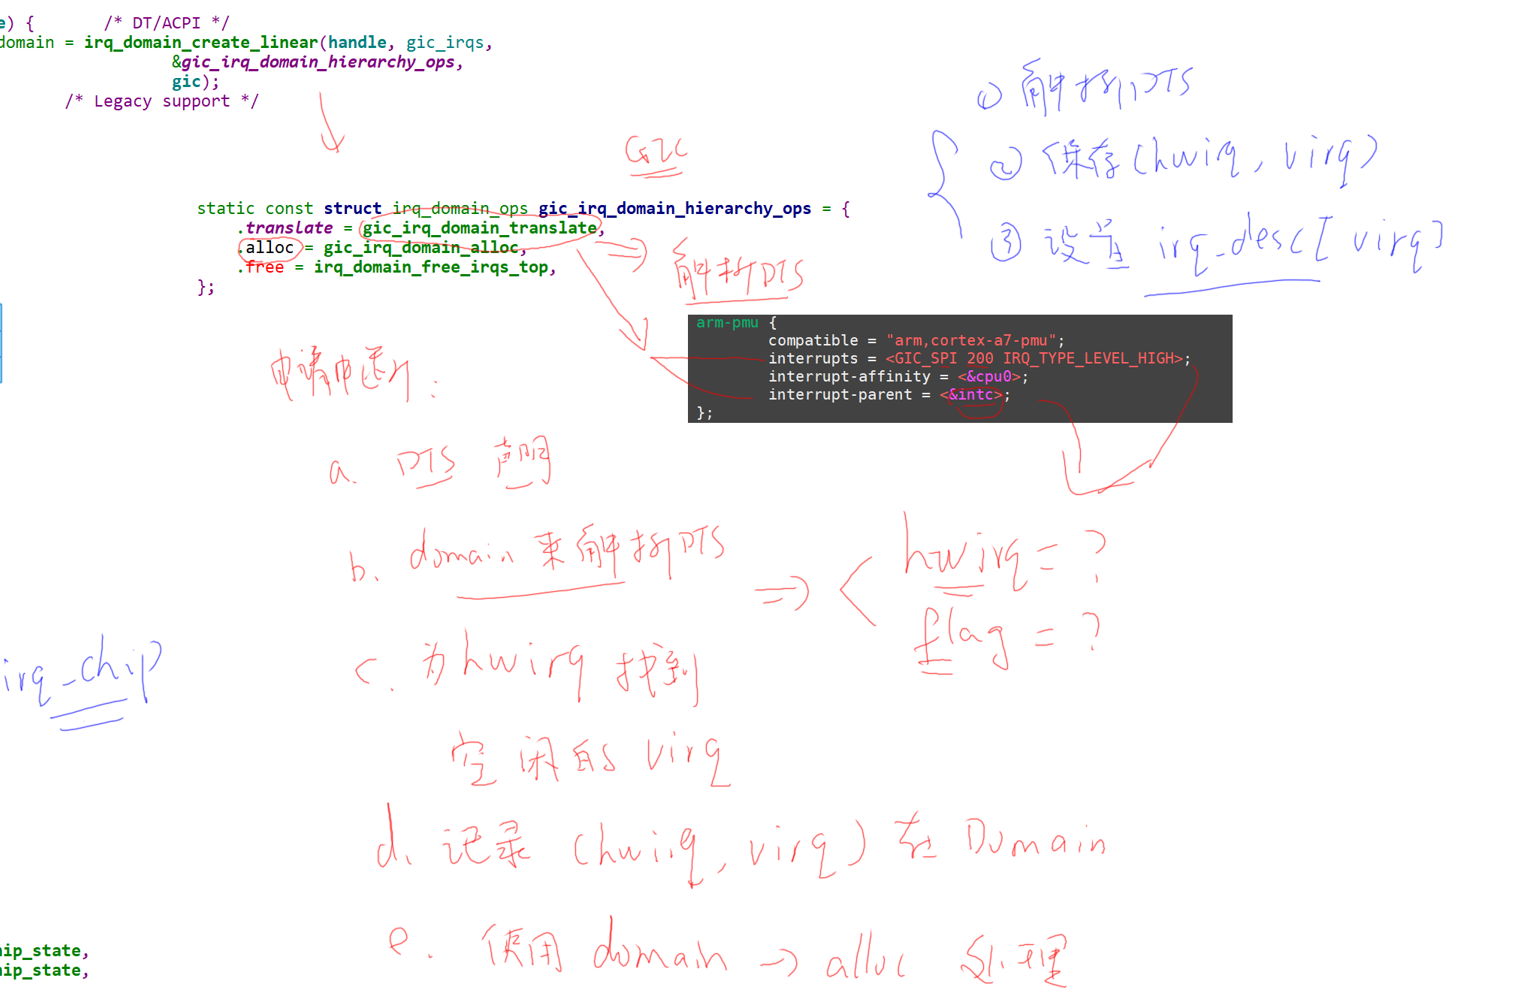 e) {        /* DT/ACPI */
domain = irq_domain_create_linear(handle, gic_irqs,
&gic_irq_domain_hierarchy_ops,
gic);
/* Legacy support */
① 解析DTS
② 保存(hwirq, virq)
③ 设置 irq_desc[virq]
GIC
static const struct irq_domain_ops gic_irq_domain_hierarchy_ops = {
.translate = gic_irq_domain_translate,
.alloc = gic_irq_domain_alloc,
.free = irq_domain_free_irqs_top,
};
=> 解析DTS
arm-pmu {
compatible = "arm,cortex-a7-pmu";
interrupts = <GIC_SPI 200 IRQ_TYPE_LEVEL_HIGH>;
interrupt-affinity = <&cpu0>;
interrupt-parent = <&intc>;
};
申请中断:
a. DTS 声明
b. domain来解析DTS => < hwirq = ?
flag = ?
c. 为hwirq 找到
空闲的 virq
irq_chip
d. 记录 (hwirq, virq) 在 Domain
e. 使用 domain -> alloc 处理
hip_state,
hip_state,